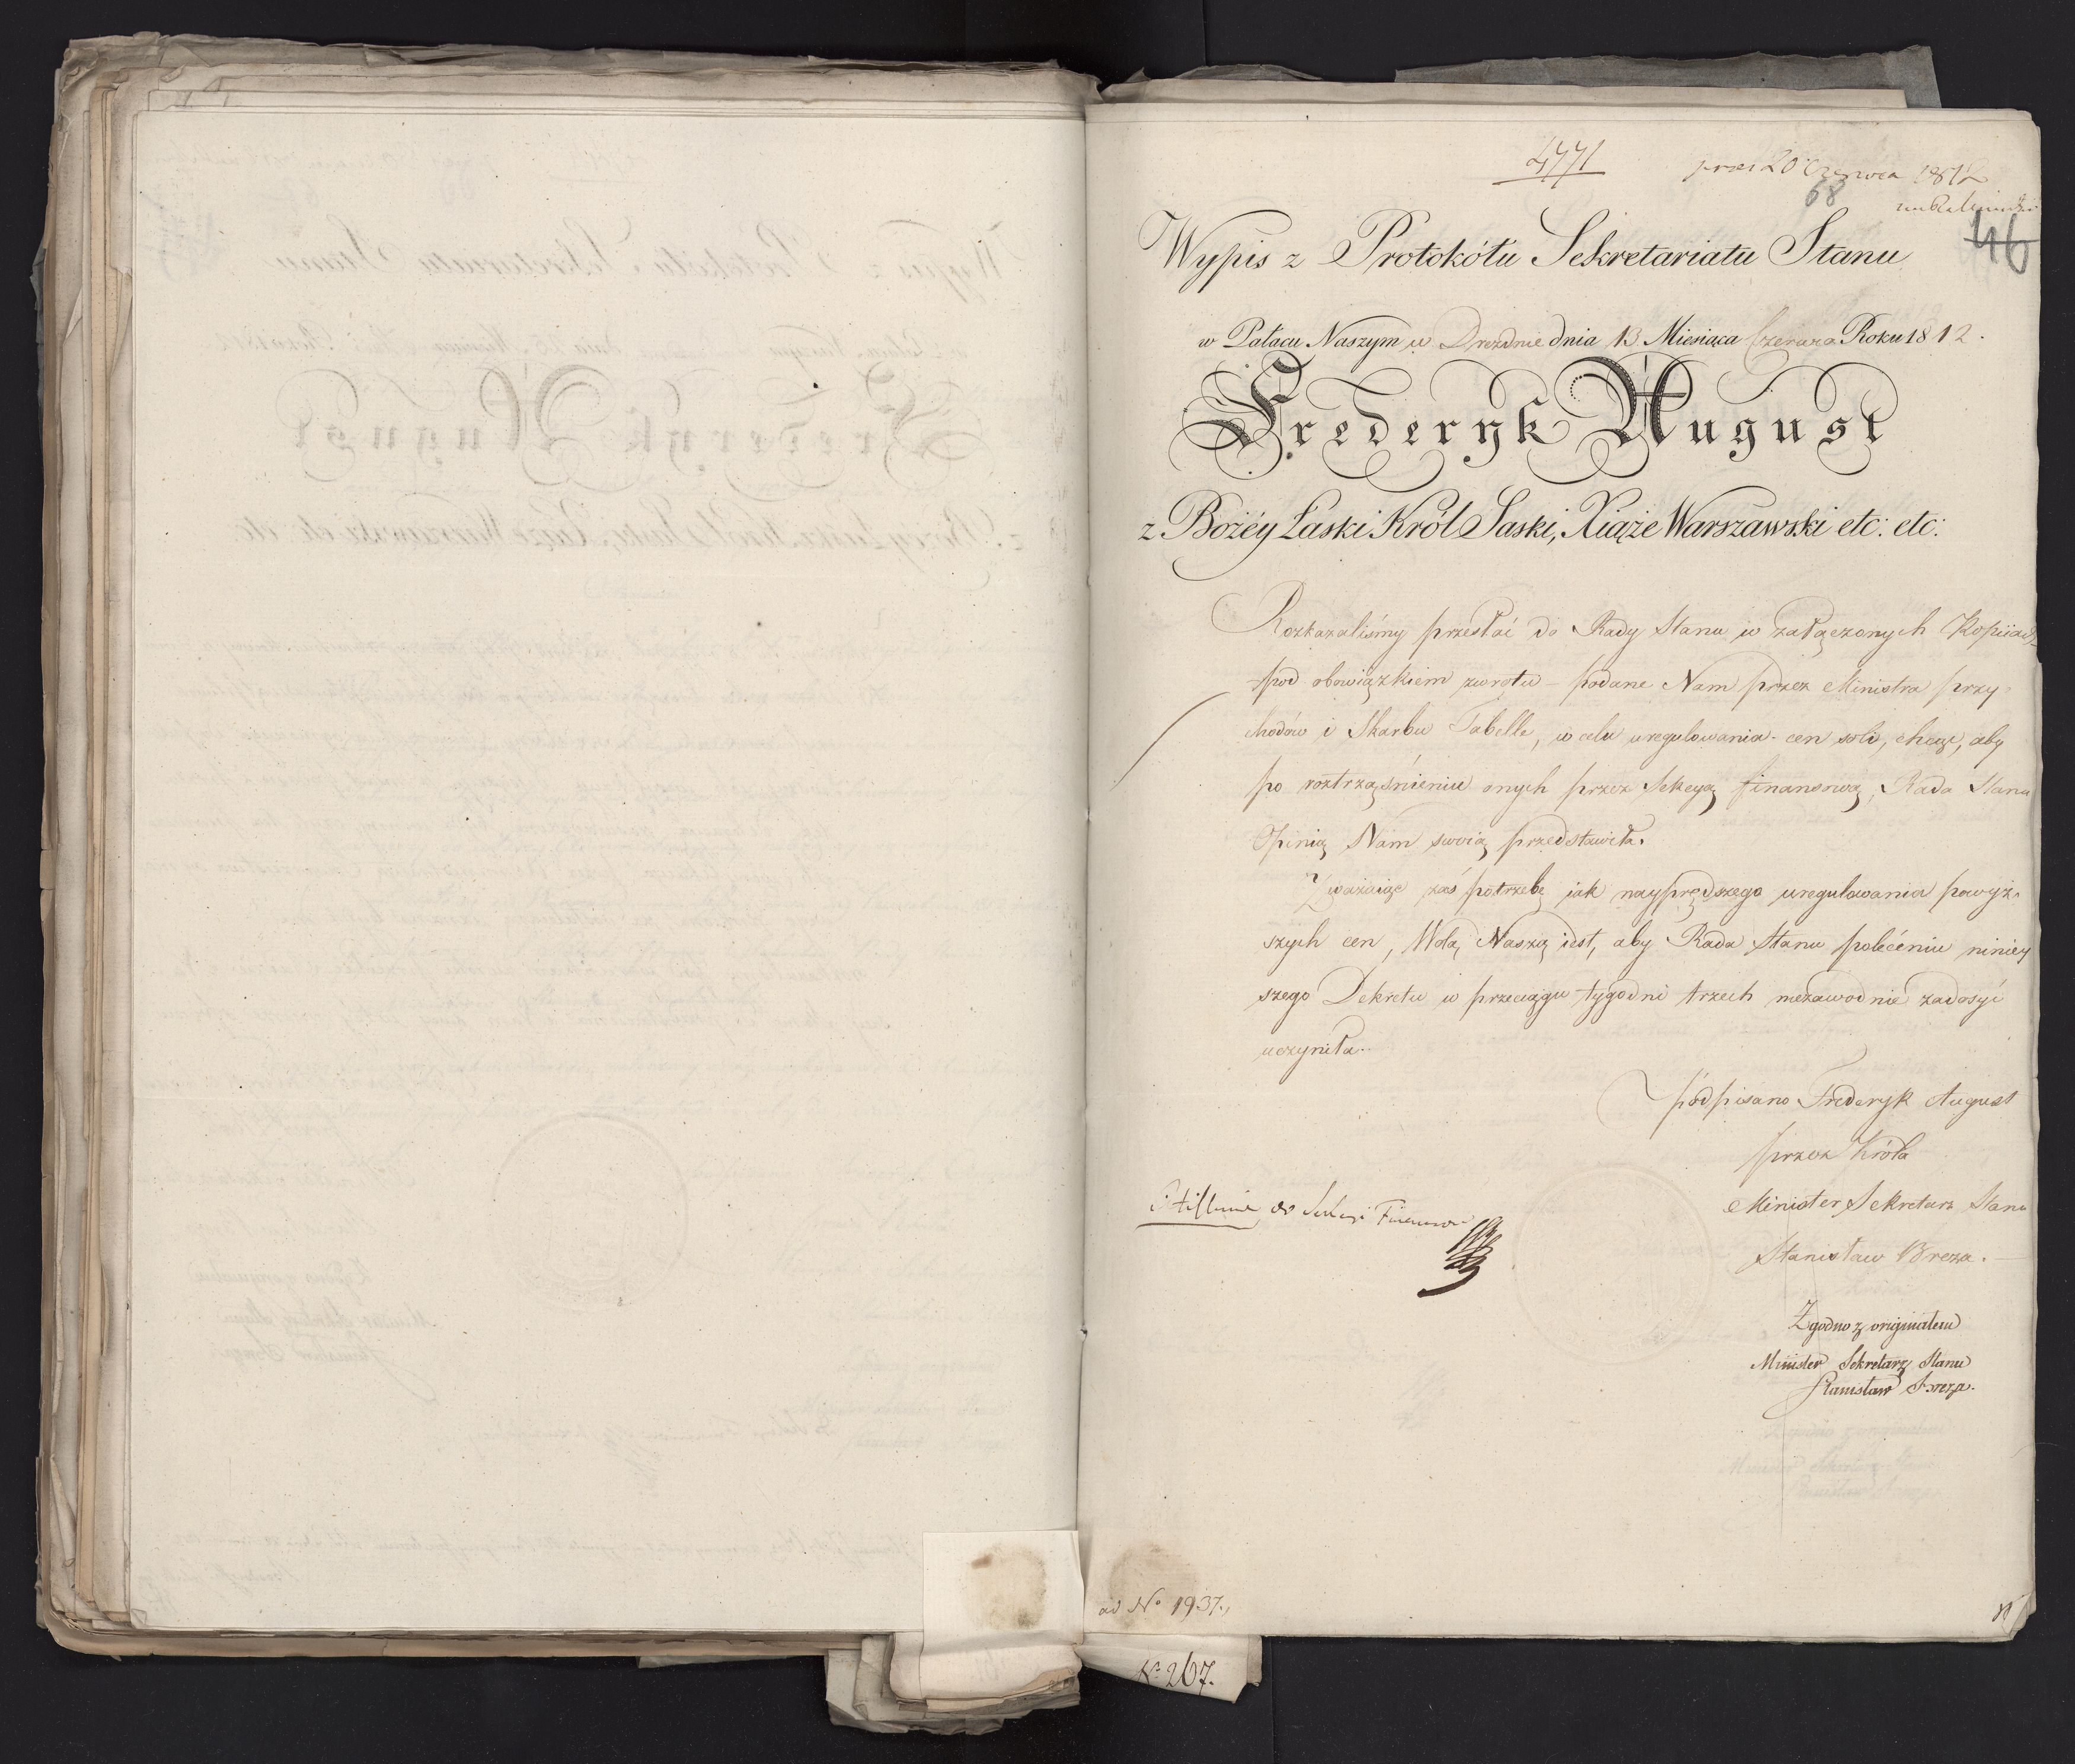 4771
prez 20 Czerwca 1812
68
46
Wypis z Protokółu Sekretariatu Stanu
w Pałacu Naszym w Dreźdnie dnia 13 Miesiąca Czerwca Roku 1812.
Frederyk August
z Bożéy Łaski Król Saski, Xiąże Warszawski etc: etc:
Rozkazaliśmy przesłać do Rady Stanu w załączonych Kopiach
pod obowiązkiem zwrotu – podane Nam przez Ministra przy-
chodów i Skarbu Tabelle, w celu uregulowania cen soli, chcąc, aby
po roztrząśnieniu onych przez Sekcyą finansową, Rada Stanu
Opinią Nam swoią przedstawiła.
Zważaiąc zaś potrzebę jak nayprędszego uregulowania powyż-
szych cen, Wolą Naszą iest, aby Rada Stanu poleceniu niniey
szego Dekretu w przeciągu tygodni trzech niezawodnie zadosyć
uczyniła.
podpisano Frederyk August
przez Króla
Minister Sekretarz Stanu
Stanisław Breza.
do Sekcyi
Zgodno z originałem
Minister Sekretarz Stanu
Stanisław Breza.
ad No 1937.
No 267.